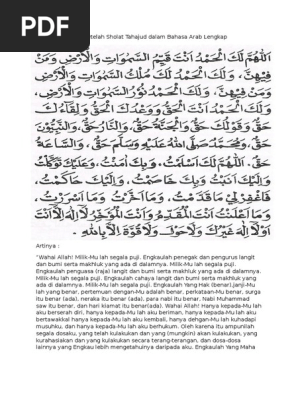 PDF
telah Sholat Tahajud dalam Bahasa Arab Lengkap
اَللّٰهُمَّ لَكَ الْحَمْدُ اَنْتَ قَيِّمُ السَّمٰوَاتِ وَالْاَرْضِ وَمَنْ
فِيْهِنَّ، وَلَكَ الْحَمْدُ لَكَ مُلْكُ السَّمٰوَاتِ وَالْاَرْضِ
وَمَنْ فِيْهِنَّ، وَلَكَ الْحَمْدُ نُوْرُ السَّمٰوَاتِ وَالْاَرْضِ،
وَلَكَ الْحَمْدُ اَنْتَ الْحَقُّ وَوَعْدُكَ الْحَقُّ وَلِقَاءُكَ
حَقٌّ وَقَوْلُكَ حَقٌّ وَالْجَنَّةُ حَقٌّ، وَالنَّارُ حَقٌّ، وَالنَّبِيُّوْنَ
حَقٌّ، وَمُحَمَّدٌ صَلَّى اللهُ عَلَيْهِ وَسَلَّمَ حَقٌّ، وَالسَّاعَةُ
حَقٌّ. اَللّٰهُمَّ لَكَ اَسْلَمْتُ، وَبِكَ اٰمَنْتُ، وَعَلَيْكَ تَوَكَّلْتُ
وَاِلَيْكَ اَنَبْتُ وَبِكَ خَاصَمْتُ، وَاِلَيْكَ حَاكَمْتُ،
فَاغْفِرْلِيْ مَا قَدَّمْتُ، وَمَا اَخَّرْتُ وَمَا اَسْرَرْتُ،
وَمَا اَعْلَنْتُ اَنْتَ الْمُقَدِّمُ وَاَنْتَ الْمُؤَخِّرُ لَا اِلٰهَ اِلَّا اَنْتَ
اَوْلَا اِلٰهَ غَيْرُكَ وَلَا حَوْلَ وَلَا قُوَّةَ اِلَّا بِاللهِ.
Artinya :
"Wahai Allah! Milik-Mu lah segala puji. Engkaulah penegak dan pengurus langit
dan bumi serta makhluk yang ada di dalamnya. Milik-Mu lah segala puji.
Engkaulah penguasa (raja) langit dan bumi serta makhluk yang ada di dalamnya.
Milik-Mu lah segala puji. Engkaulah cahaya langit dan bumi serta makhluk yang
ada di dalamnya. Milik-Mu lah segala puji. Engkaulah Yang Hak (benar),janji-Mu
lah yang benar, pertemuan dengan-Mu adalah benar, perkataan-Mu benar, surga
itu benar (ada), neraka itu benar (ada), para nabi itu benar, Nabi Muhammad
saw itu benar, dan hari kiamat itu benar(ada). Wahai Allah! Hanya kepada-Mu lah
aku berserah diri, hanya kepada-Mu lah aku beriman, hanya kepada-Mu lah aku
bertawakkal hanya kepada-Mu lah aku kembali, hanya dehgan-Mu lah kuhadapi
musuhku, dan hanya kepada-Mu lah aku berhukum. Oleh karena itu ampunilah
segala dosaku, yang telah kulakukan dan yang (mungkin) akan kulakukan, yang
kurahasiakan dan yang kulakukan secara terang-terangan, dan dosa-dosa
lainnya yang Engkau lebih mengetahuinya daripada aku. Engkaulah Yang Maha